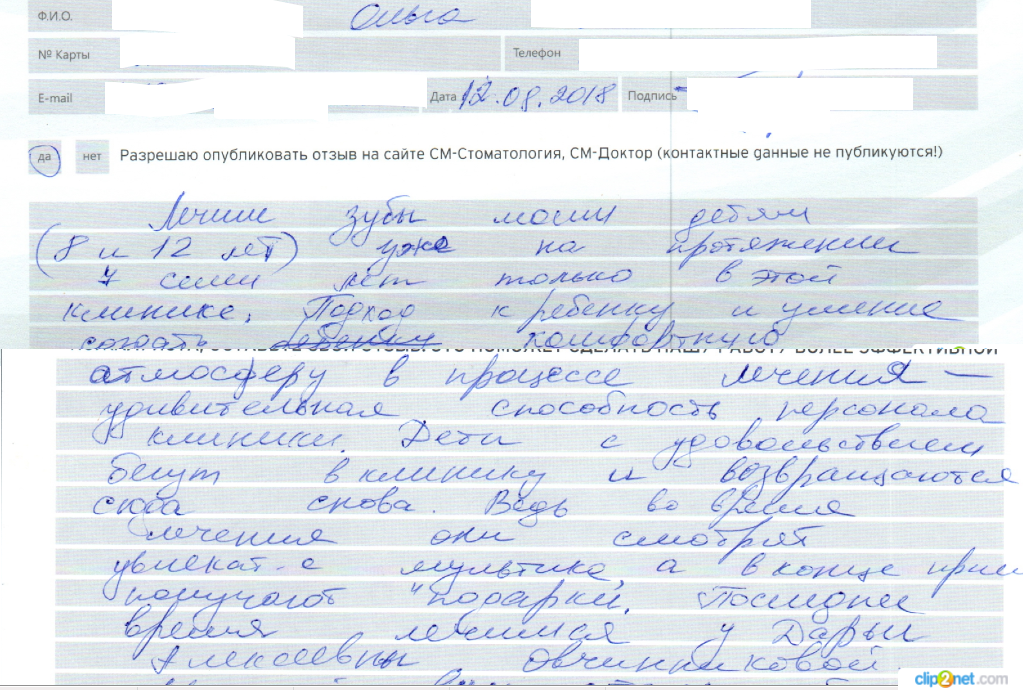 Ф.И.О. Ольга
№ Карты Телефон
E-mail Дата 12.08.2018 Подпись
да нет Разрешаю опубликовать отзыв на сайте СМ-Стоматология, СМ-Доктор (контактные данные не публикуются!)
Лечим зубы моим детям
(8 и 12 лет) уже на протяжении
7 семи лет только в этой
клинике. Подход к ребенку и умение
создать комфортную
атмосферу в процессе лечения –
удивительная способность персонала
клиники. Дети с удовольствием
бегут в клинику и возвращаются
сюда снова. Ведь во время
лечения они смотрят
увлекат-е мультики, а в конце
получают "подарки. Последнее
время лечимся у Дарьи
Алексеевны Овчинниковой.
clip2net.com